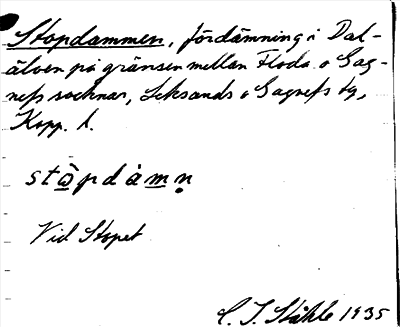 Stopdammen, fördämning i Dal-
älven på gränsen mellan Floda o Gag-
nefs socknar, Leksands o Gagnefs tg,
Kopp. l.
stɷ̀pdàmn̥
Vid Stopet
C. I. Ståhle 1935